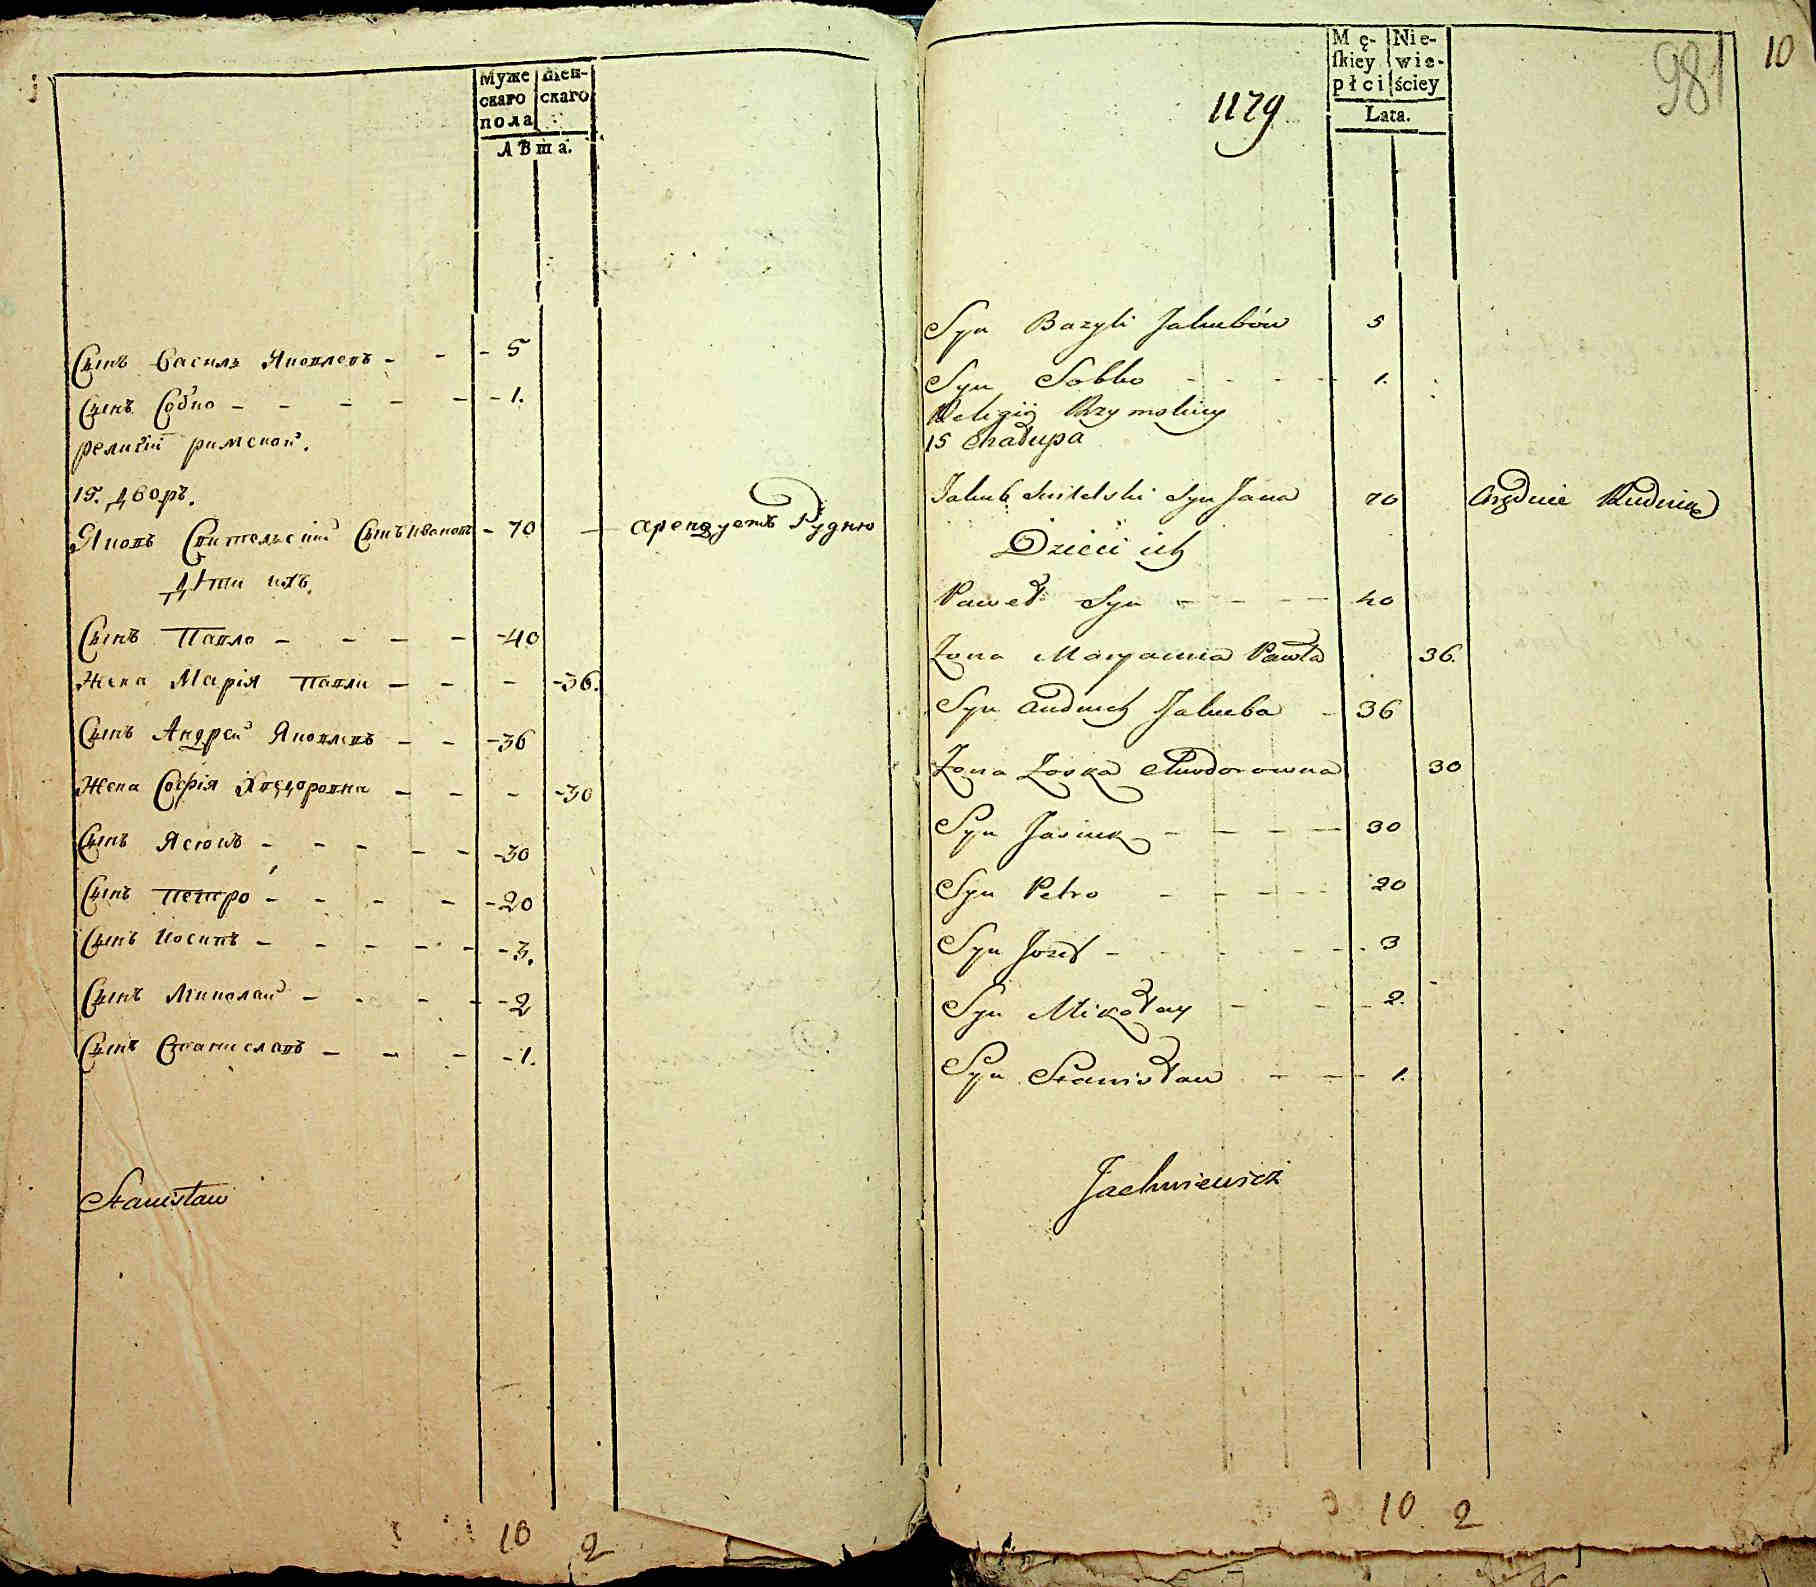 Муже Жен-
скаго скаго
пола
Лѣта.
Сынъ Василь Яковлевъ - - - 5
Сынъ Собко - - - - - - 1.
религіи римской.
15. дворъ.
Яковъ Свительскій Сынъ Ивановъ - 70 — арендуетъ Рудню
Дѣти ихъ.
Сынъ Павло - - - - - 40
Жена Марія Павли - - - - 36.
Сынъ Андрей Яковлевъ - - - 36
Жена Софія Хведоровна - - - - 30
Сынъ Ясюкъ - - - - - - 30
Сынъ Петро - - - - - 20
Сынъ Иосипъ - - - - - - 3.
Сынъ Миколай - - - - - 2
Сынъ Станиславъ - - - - 1.
Stanisław
10 2
981 10
1179
Mę- Nie-
skiey wie-
płci ściey
Lata.
Syn Bazyli Jakubów 5
Syn Sobko - - - - 1.
Religii Rzymskiey
15 Chałupa
Jakub Switelski Syn Jana 70 Aręduie Rudnie
Dzieci ich
Paweł Syn - - - - 40
Żona Maryanna Pawła 36.
Syn Andruch Jakuba - 36
Żona Zoska Chwodorowna 30
Syn Jasiuk - - - - 30
Syn Petro - - - - 20
Syn Jozef - - - - - 3
Syn Mikołay - - - 2.
Syn Stanisław - - - 1.
Jachniewicz
10 2